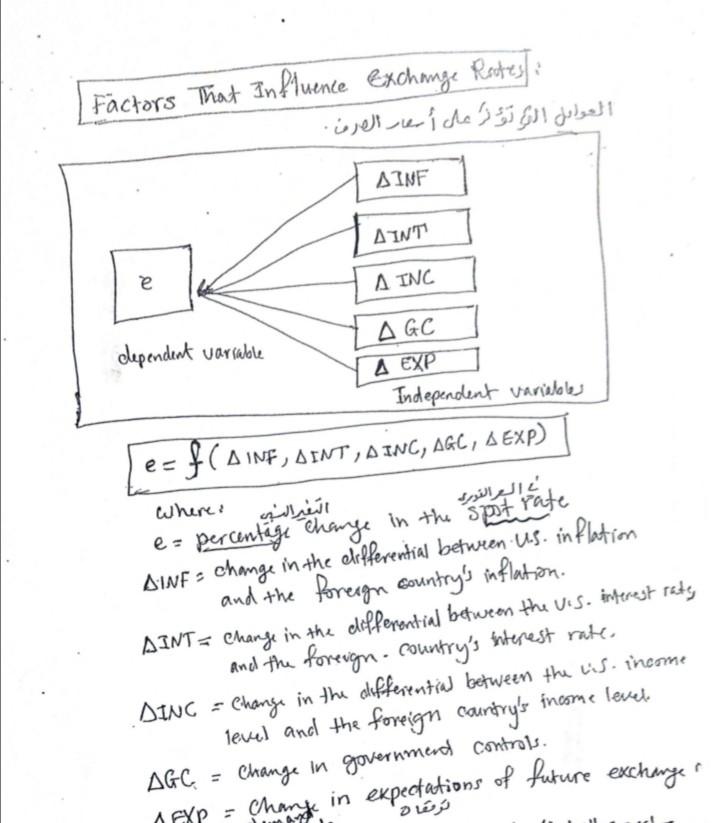 Factors That Influence Exchange Rates:
العوامل التي تؤثر على أسعار الصرف.
ΔINF
ΔINT
e
Δ INC
Δ GC
dependent variable
Δ EXP
Independent variables
e = f(ΔINF, ΔINT, ΔINC, ΔGC, ΔEXP)
where:
التغير النسبي
e = percentage change in the spot rate
ΔINF = change in the differential between U.S. inflation
and the foreign country's inflation.
ΔINT = change in the differential between the U.S. interest rate
and the foreign country's interest rate.
ΔINC = change in the differential between the U.S. income
level and the foreign country's income level
ΔGC = change in government controls.
ΔEXP = change in expectations of future exchange